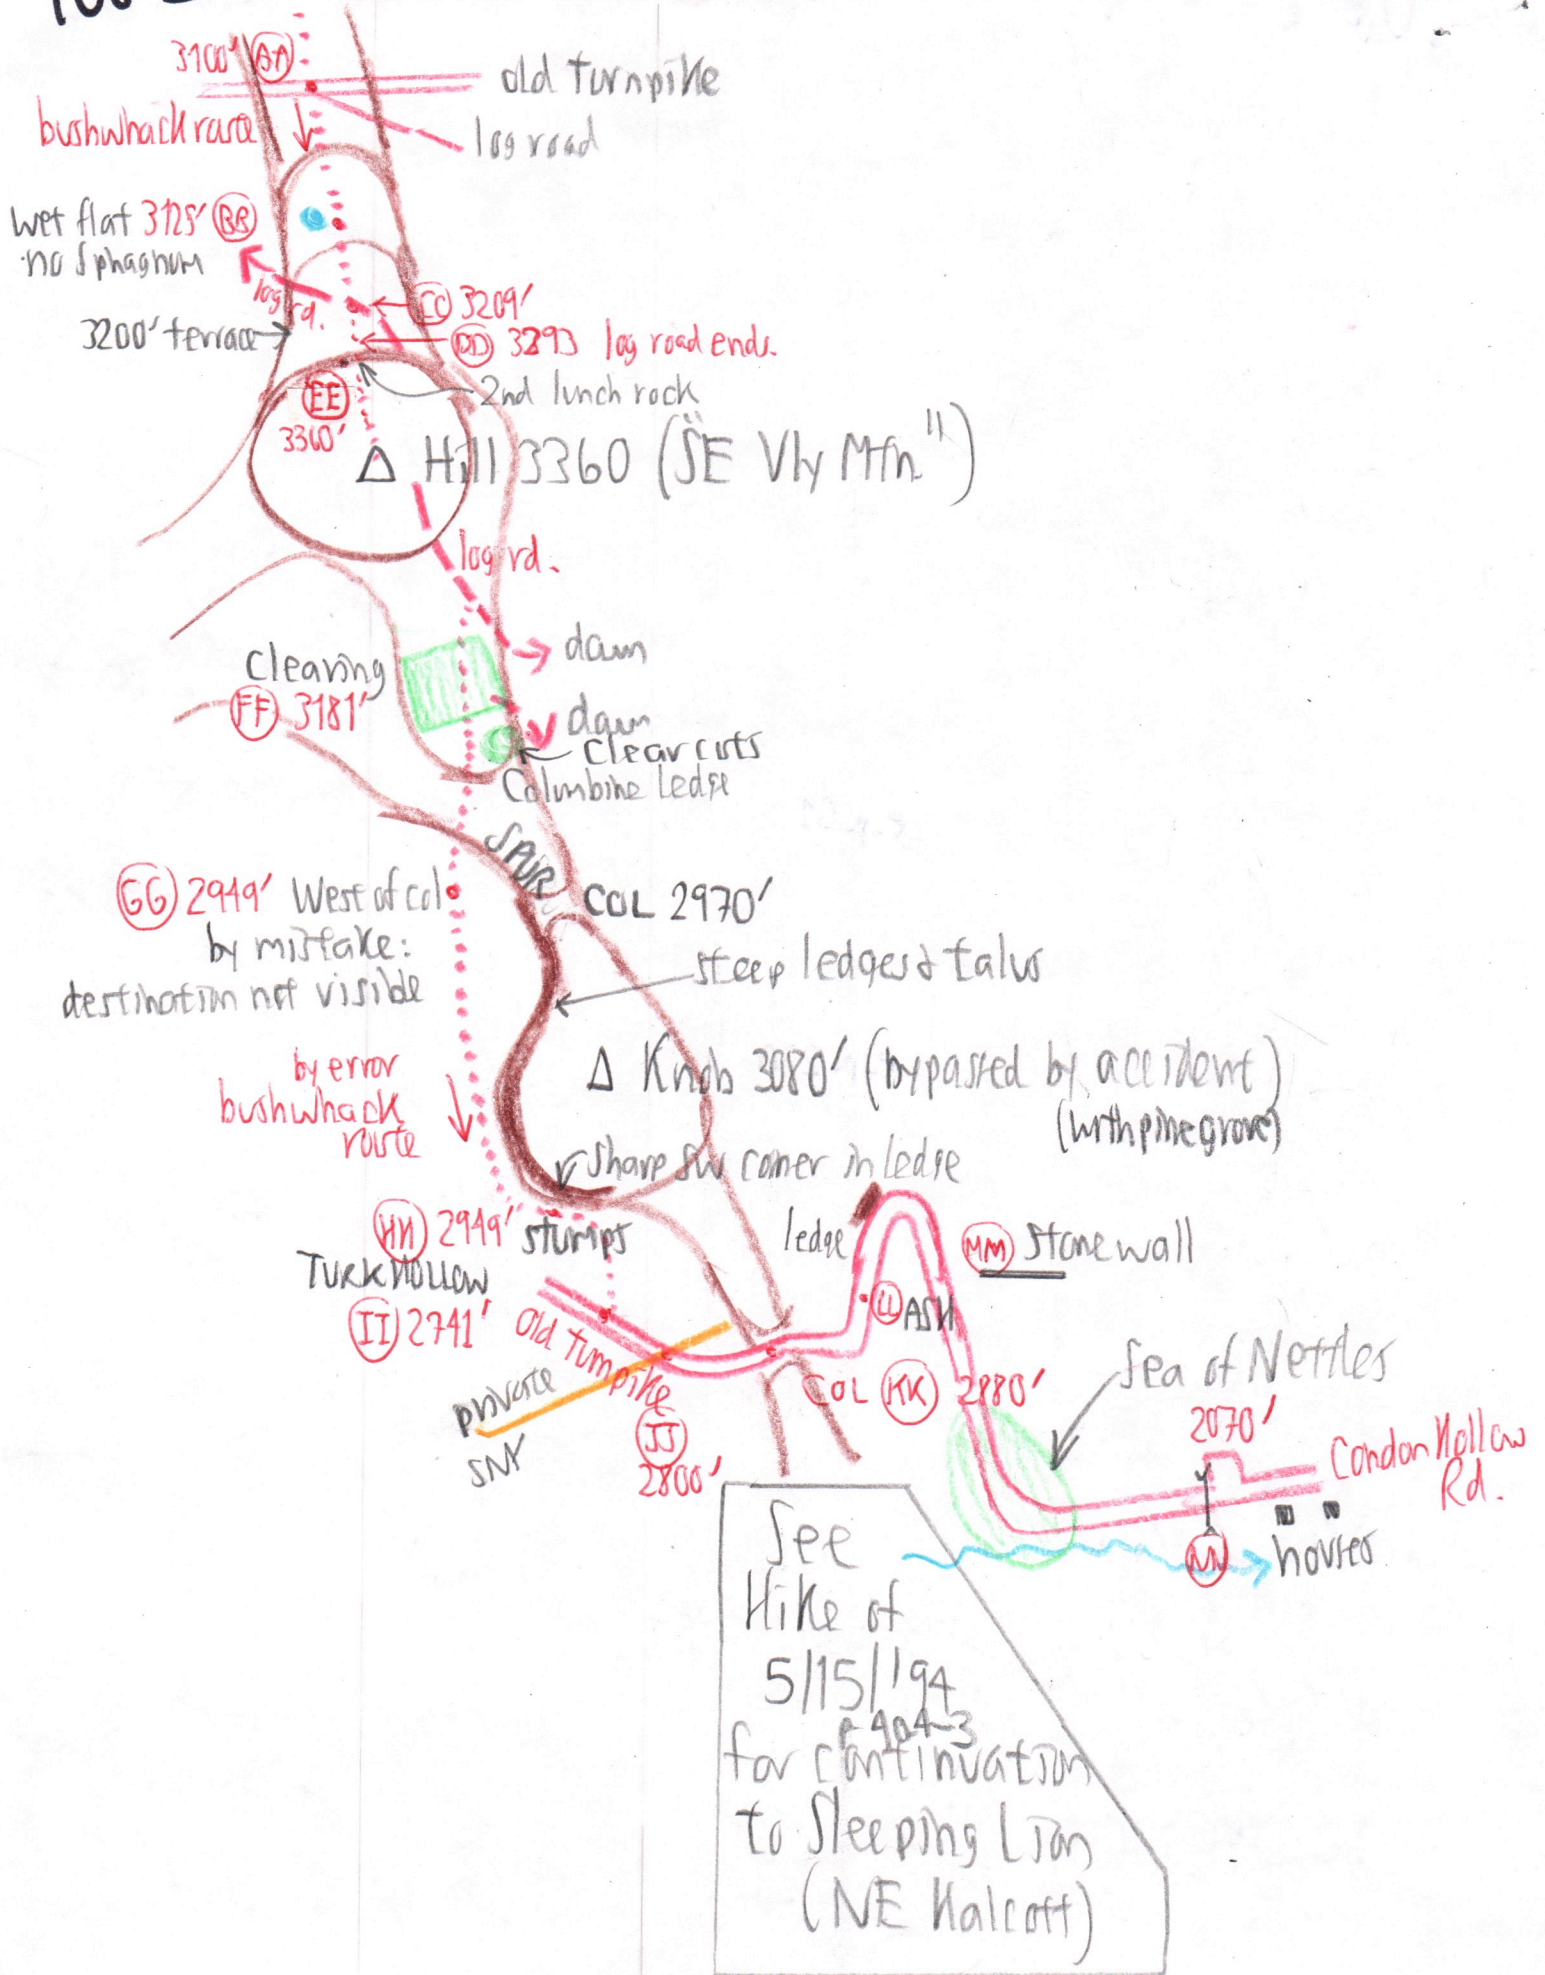 3100' AA
old turnpike
bushwhack route
log road
wet flat 3125' BB
no sphagnum
log rd.
CC 3209'
3200' terrace
DD 3293 log road ends.
2nd lunch rock
EE
3360'
Δ Hill 3360 ("SE Vly Mtn.")
log rd.
dawn
Clearing
FF 3181'
dawn
clear cuts
Columbine Ledge
SPUR
GG 2949' West of col
by mistake:
destination not visible
COL 2970'
steep ledges & talus
by error
bushwhack
route
Δ Knob 3080' (bypassed by accident)
(with pine grove)
sharp SW corner in ledge
HH 2949' stumps
ledge
MM Stone wall
TURK HOLLOW
II 2741'
Old turnpike
LL ASH
private
SNY
JJ
2800'
COL KK 2880'
Sea of Nettles
2070'
Condon Hollow
Rd.
NN
houses
See
Hike of
5/15/'94
p 404-3
for continuation
to Sleeping Lion
(NE Halcott)